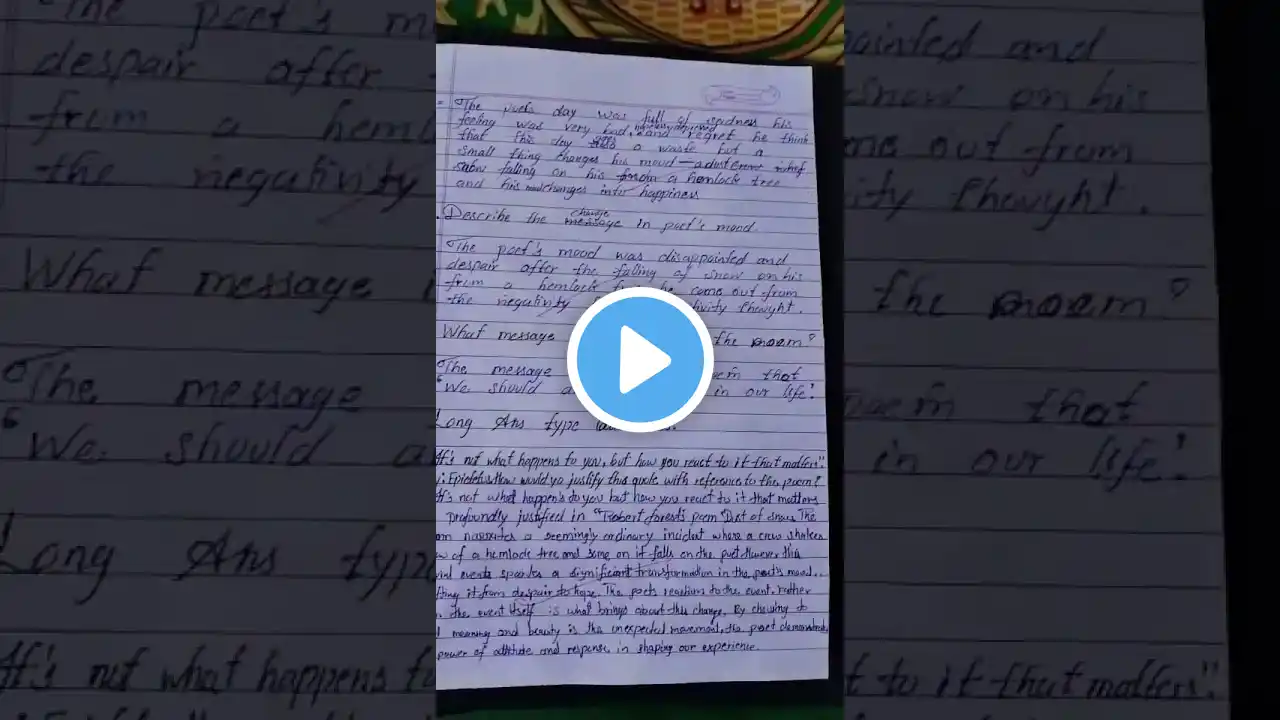 The poets day was full of sadness his
feeling was very bad, and regret he think
that this day also a waste but a
small thing changes his mood—
snow falling on his from a hemlock tree
and his mood changes into happiness
Describe the change message in poet's mood.
The poet's mood was disappointed and
despair after the falling of snow on his
from a hemlock tree he come out from
the negativity thought.
What message the poem?
The message that
"We should in our life".
Long Ans type
It's not what happens to you, but how you react to it that matters".
Epictetus. How would yo justify this quote with reference to the poem?
It's not what happens to you but how you react to it that matters
profoundly justified in "Robert forest's poem Dust of snow. The
narrates a seemingly ordinary incident where a crow shakes
of a hemlock tree and some on it falls on the poet. However this
event sparks a significant transformation in the poet's mood..
it from despair to hope. The poets reaction to the event, rather
the event itself is what brings about this change. By chosing to
meaning and beauty is this unexpected movement, the poet demonstrates
power of attitude and response in shaping our experience.